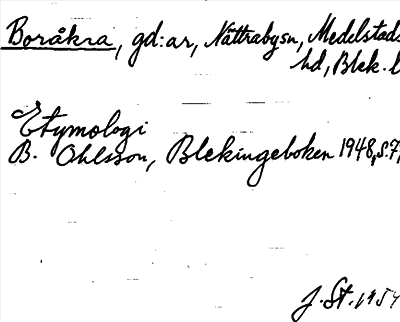 Boråkra, gd:ar, Nättrabysn, Medelstads
hd, Blek. l
Etymologi
B. Ohlsson, Blekingeboken 1948, s. 7,
J. St. 1954